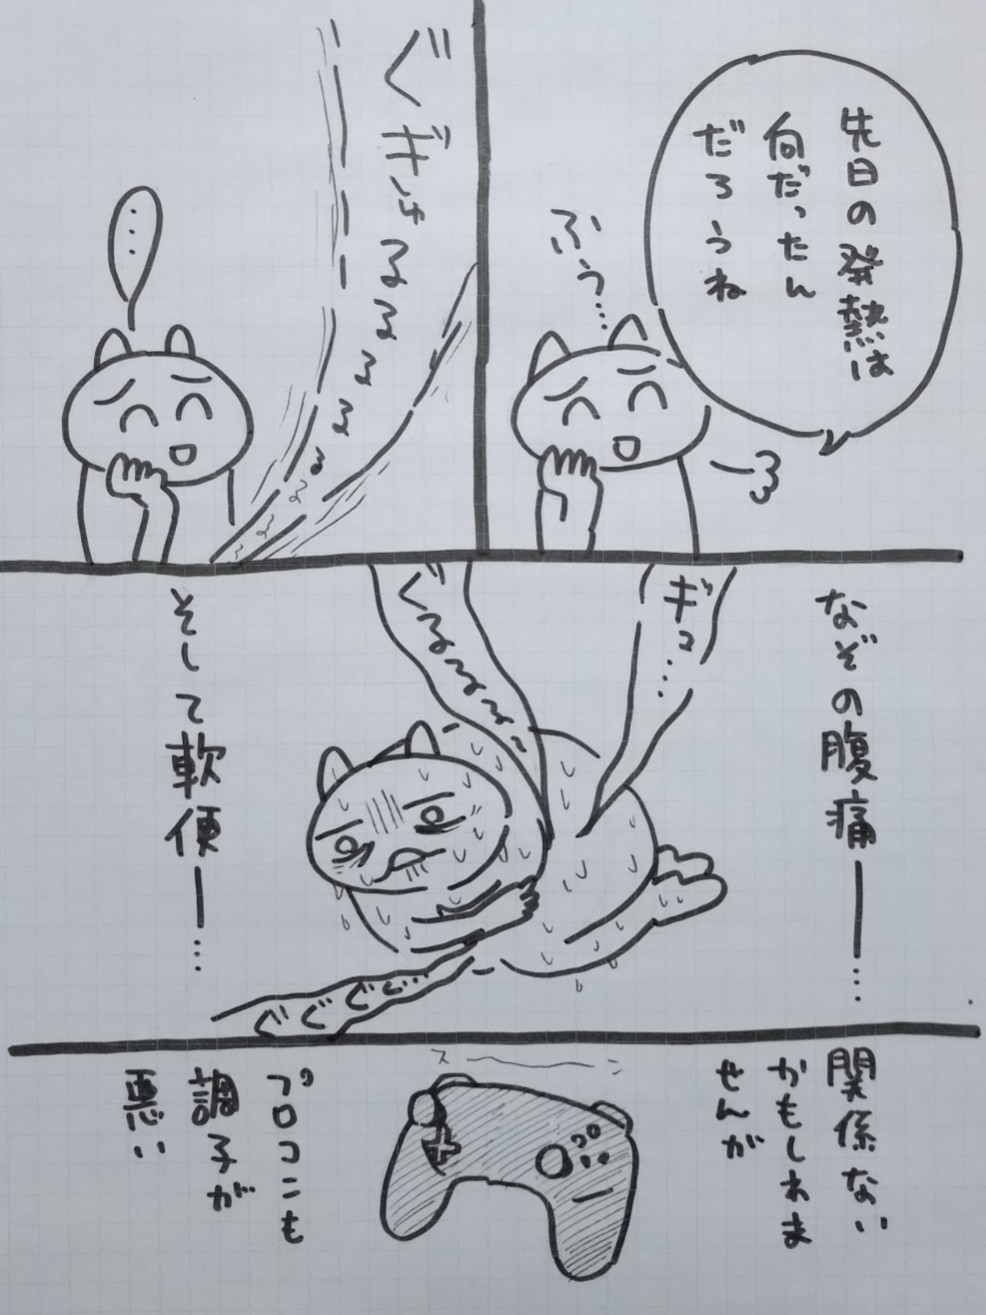 先日の発熱は
何だったん
だろうね
ふぅ…
ぐぎゅるるるるるるるる
…
なぞの腹痛―…
ギュ…
ぐるるるる〜
ぐぐぐぐ…
そして軟便―…
関係ない
かもしれま
せんが
ス
プロコンも
調子が
悪い